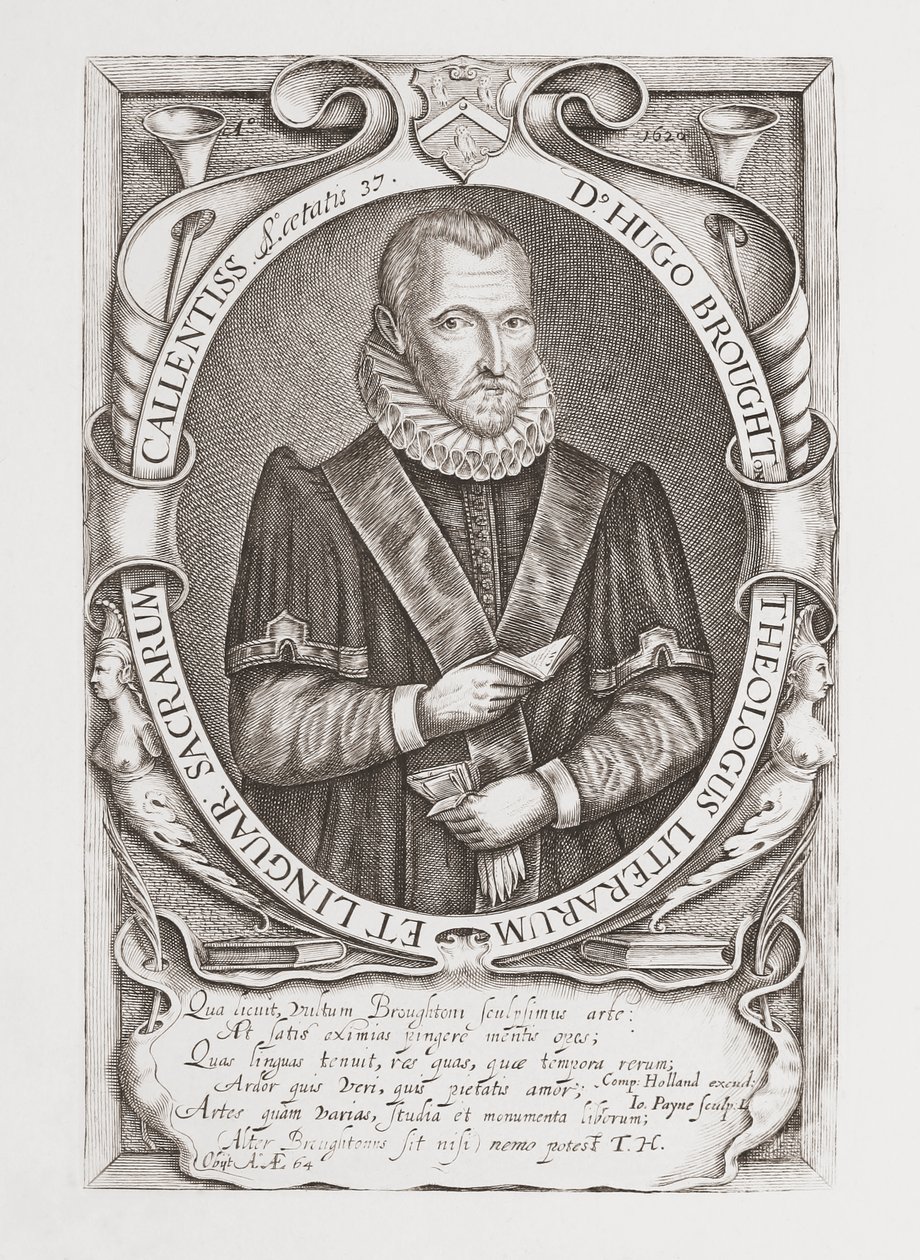 A.º 1620
D.ˢ HUGO BROUGHTON
THEOLOGUS LITERARUM
ET LINGUAR: SACRARUM
CALLENTISS. Aº. ætatis 37.
Qua licuit, Vultum Broughtoni sculpsimus arte:
At satis eximias pingere mentis opes;
Quas linguas tenuit, res quas, quæ tempora rerum;
Ardor quis Veri, quis pietatis amor;
Comp: Holland excud:
Io. Payne sculp. L
Artes quam varias, studia et monumenta liborum;
(Alter Broughtonus sit nisi) nemo potest T. H.
Obijt Aº. Æ. 64